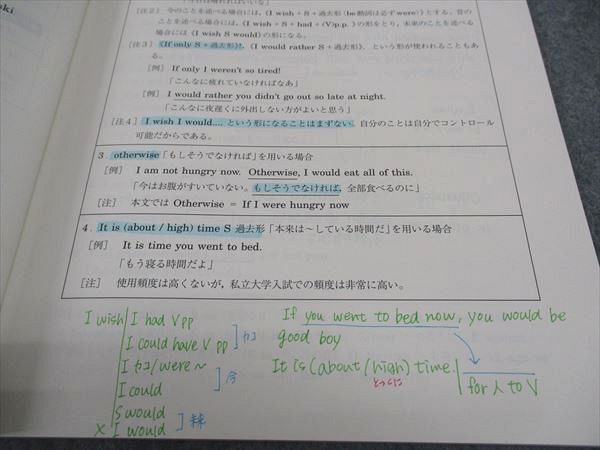 oki
[注2] 今のことを述べる場合には,〈I wish + S + 過去形 (be動詞は必ずwere)〉とする。昔の
ことを述べる場合には,〈I wish + S + had + (V)p.p.〉の形をとり, 未来のことを述べる
場合には〈I wish S would〉の形になる。
[注3] 〈If only S + 過去形〉!,〈I would rather S + 過去形〉, という形が使われることもあ
る。
[例] If only I weren't so tired!
「こんなに疲れていなければなあ」
[例] I would rather you didn't go out so late at night.
「こんなに夜遅くに外出しない方がよいと思う」
[注4] I wish I would.... という形になることはまずない。自分のことは自分でコントロール
可能だからである。
3. otherwise「もしそうでなければ」を用いる場合
[例] I am not hungry now. Otherwise, I would eat all of this.
「今はお腹がすいていない。もしそうでなければ, 全部食べるのに」
[注] 本文では Otherwise = If I were hungry now
4. It is (about / high) time S 過去形「本来は〜している時間だ」を用いる場合
[例] It is time you went to bed.
「もう寝る時間だよ」
[注] 使用頻度は高くないが, 私立大学入試での頻度は非常に高い。
I wish I had Vpp
I could have Vpp カコ
I カコ/were ~
I could 今
S would
× I would 未来
If you went to bed now, you would be
good boy
It is (about/high) time.
とっくに
for 人 to V